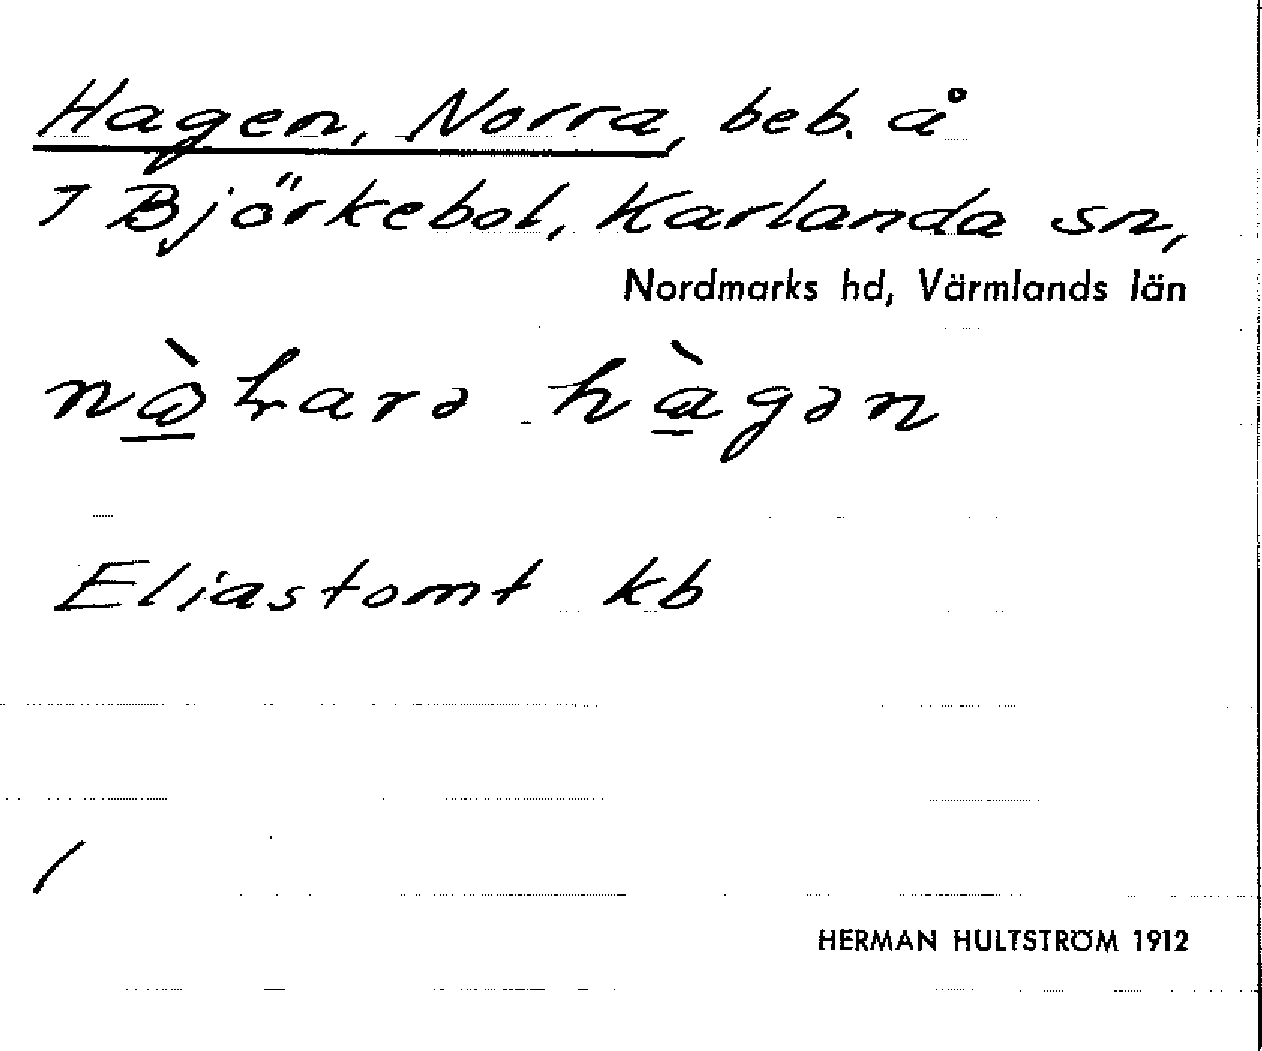 Hagen, Norra, beb. å
7 Björkebol, Karlanda sn,
Nordmarks hd, Värmlands län
hàgən
Eliastomt kb
/
HERMAN HULTSTRÖM 1912